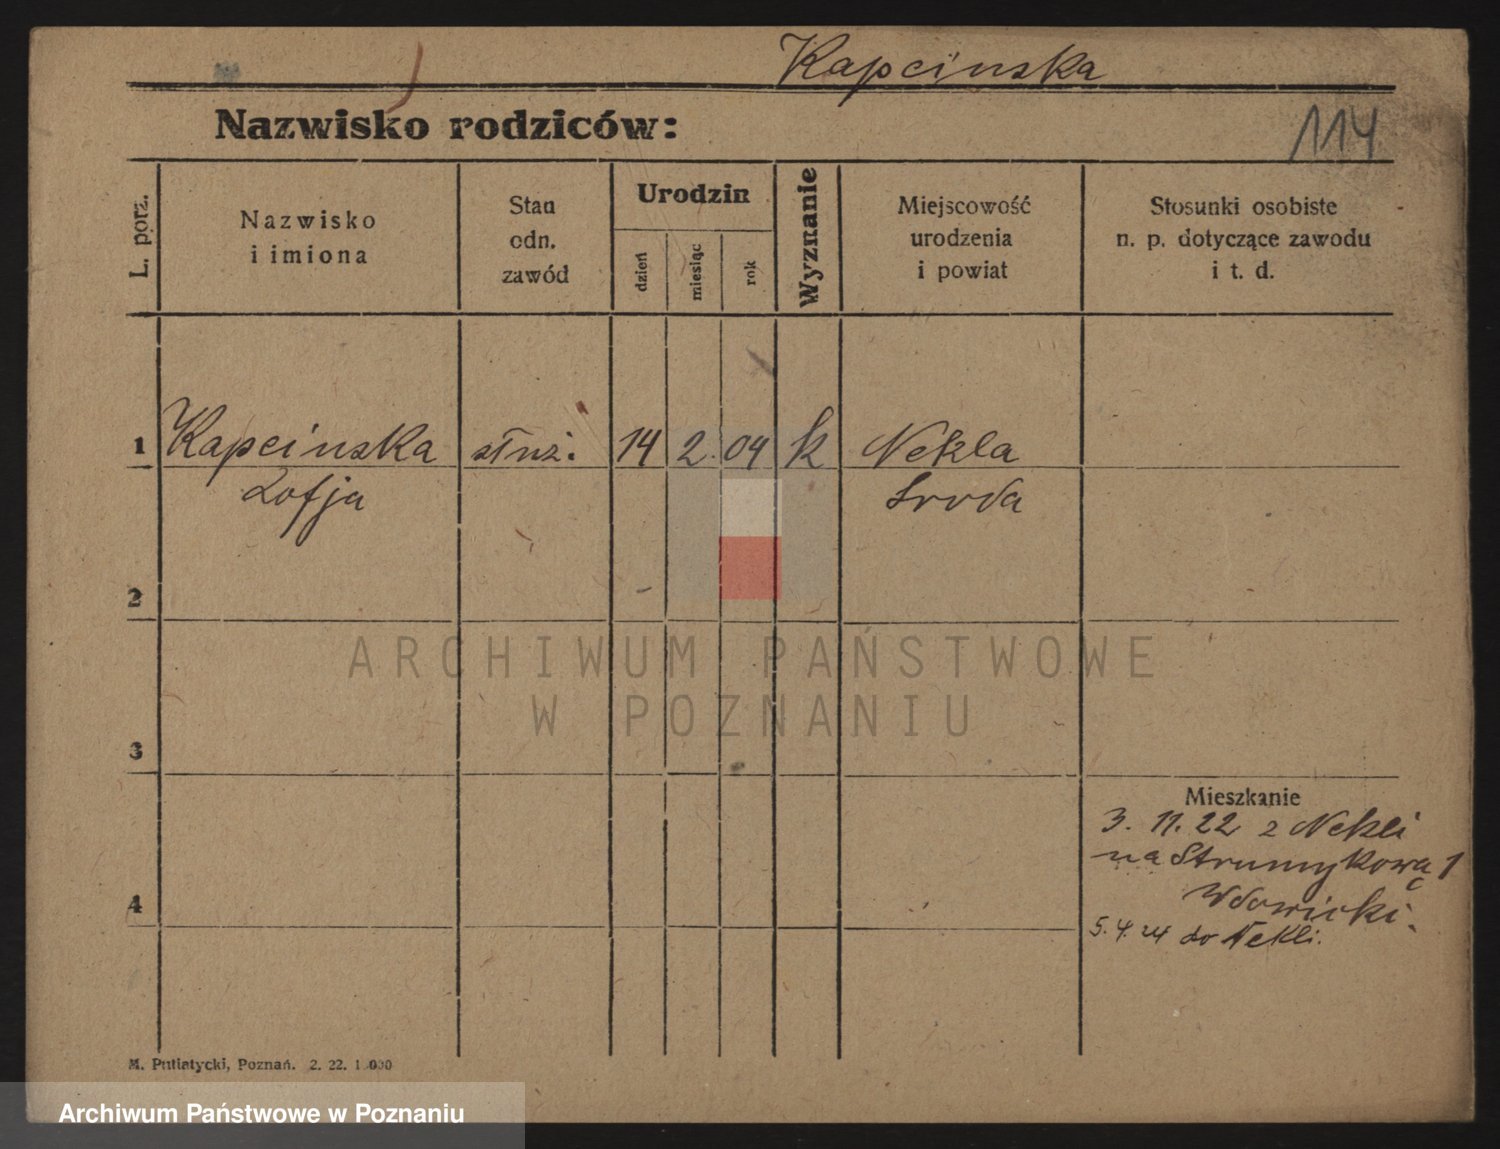 Kapcinska
Nazwisko rodziców:
114
L. porz.
Nazwisko
i imiona
Stan
odn.
zawód
Urodzin
dzień
miesiąc
rok
Wyznanie
Miejscowość
urodzenia
i powiat
Stosunki osobiste
n. p. dotyczące zawodu
i t. d.
1 Kapcinska służ. 14 2. 04 k Nekla
Zofja Sroda
2
ARCHIWUM PAŃSTWOWE
W POZNANIU
3
Mieszkanie
3. 11. 22 z Nekli
na Strumykową 1
4
Wdowicki.
5. 4. 24 do Nekli.
M. Putiatycki, Poznań. 2. 22.
Archiwum Państwowe w Poznaniu